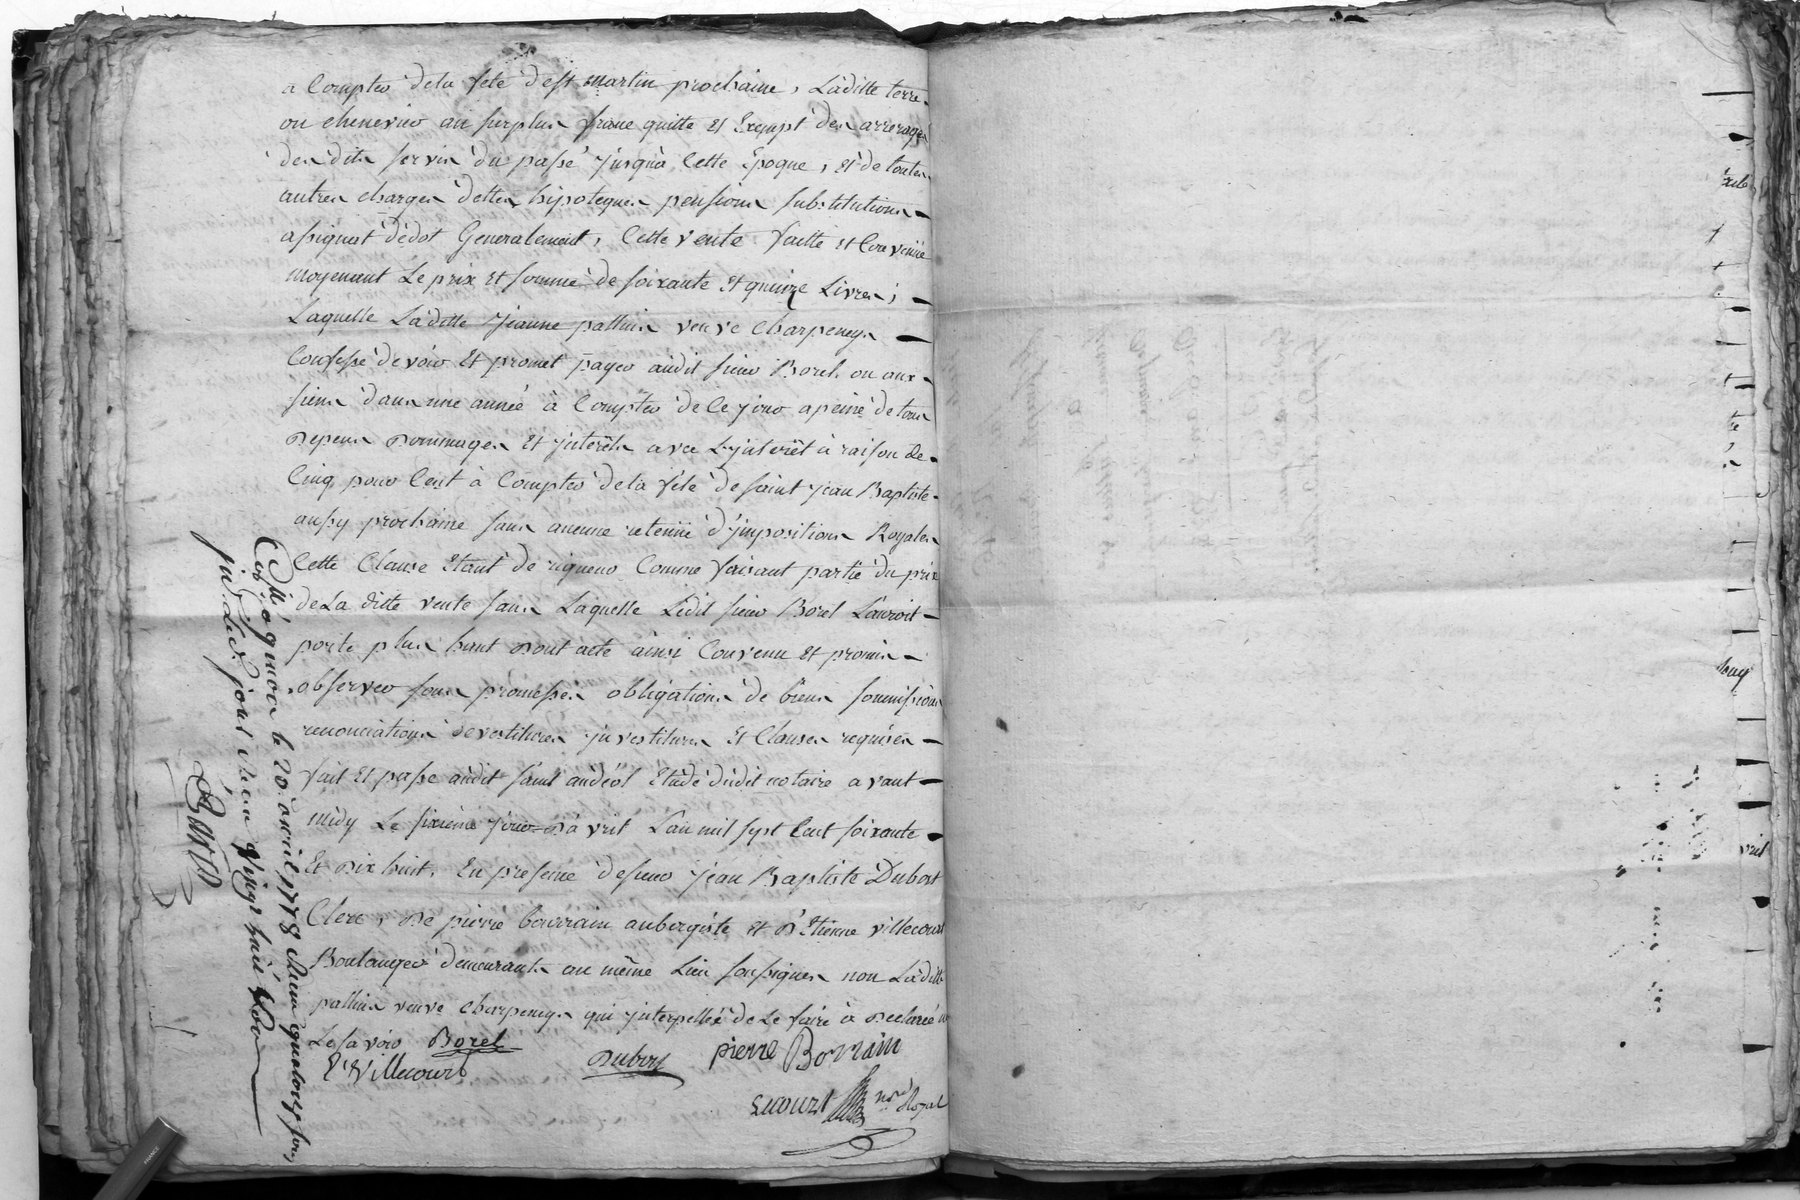 a Compter dela fete dest martin prochaine, Laditte terre
ou chenevier au surplus franc quitte et Exempt des arrerages
des dits servis du passé jusqu'à Cette Epoque, et de toutes
autres charges dettes hipoteques pensions substitutions
assignat dedot Generalement, Cette vente faitte et Convenüe
moyenant Le prix et somme de soixante et quinze Livres;
Laquelle Laditte jeanne pallius veuve Charpeney
Confesse devoir et promet payer audit sieur Borel ou aux
siens dans une année à Compter de Ce jour apeine de tous
Depens Dommages et jnterêts avec L'jnterêt à raison de
Cinq pour Cent à Compter dela fete de saint jean Baptiste
aussy prochaine sans aucune retenüe d'jmpositions Royales
Cette Clause Etant de rigueur Comme faisant partie du prix
de La ditte vente sans Laquelle Ledit sieur Borel L'auroit
porté plus haut Dont acte ainsi Convenu et promis
observer sous promesses obligations de biens soumissions
renonciations devestitures jnvestitures et Clauses requises
fait et passé audit saint andéol Etude dudit notaire avant
midy Le sixieme jour D'avril L'an mil sept Cent soixante
Et Dix huit, En presence de sieur jean Baptiste Dubost
Clerc, De pierre bourrain aubergiste et D'Etienne villecourt
Boulanger demeurants au même Lieu soussignes non Laditte
pallius veuve Charpeney qui jnterpellée de Le faire à Declaré ne
Le savoir Borel
E Villecourt Dubost pierre Borrain
Ecourt nore Royal
Con.lé à le 20 avril 1778 Reçu quatorze sous
jn. Led. jour Reçu vingt huit sous